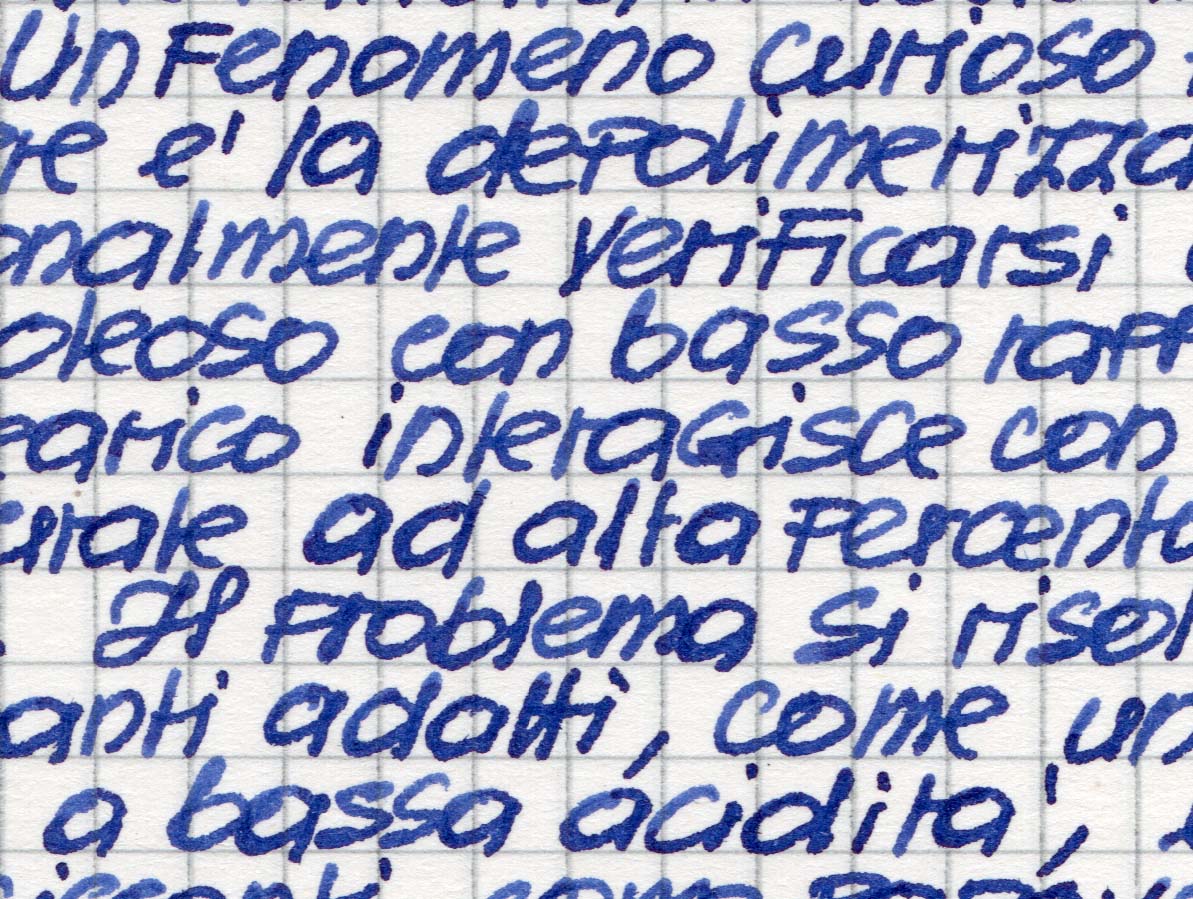 Un fenomeno curioso
re e' la depolimerizza
onalmente verificarsi
oleoso con basso rapp
earico interagisce con
urate ad alta percenta
Il problema si risol
anti adatti, come un
a bassa acidita',